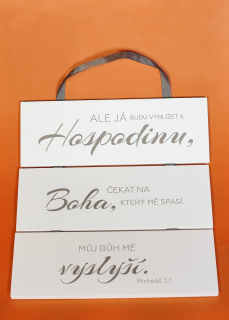 ALE JÁ BUDU VYHLÍŽET K
Hospodinu,
ČEKAT NA
Boha, KTERÝ MĚ SPASÍ.
MŮJ BŮH MĚ
vyslyší.
Micheáš 7,7